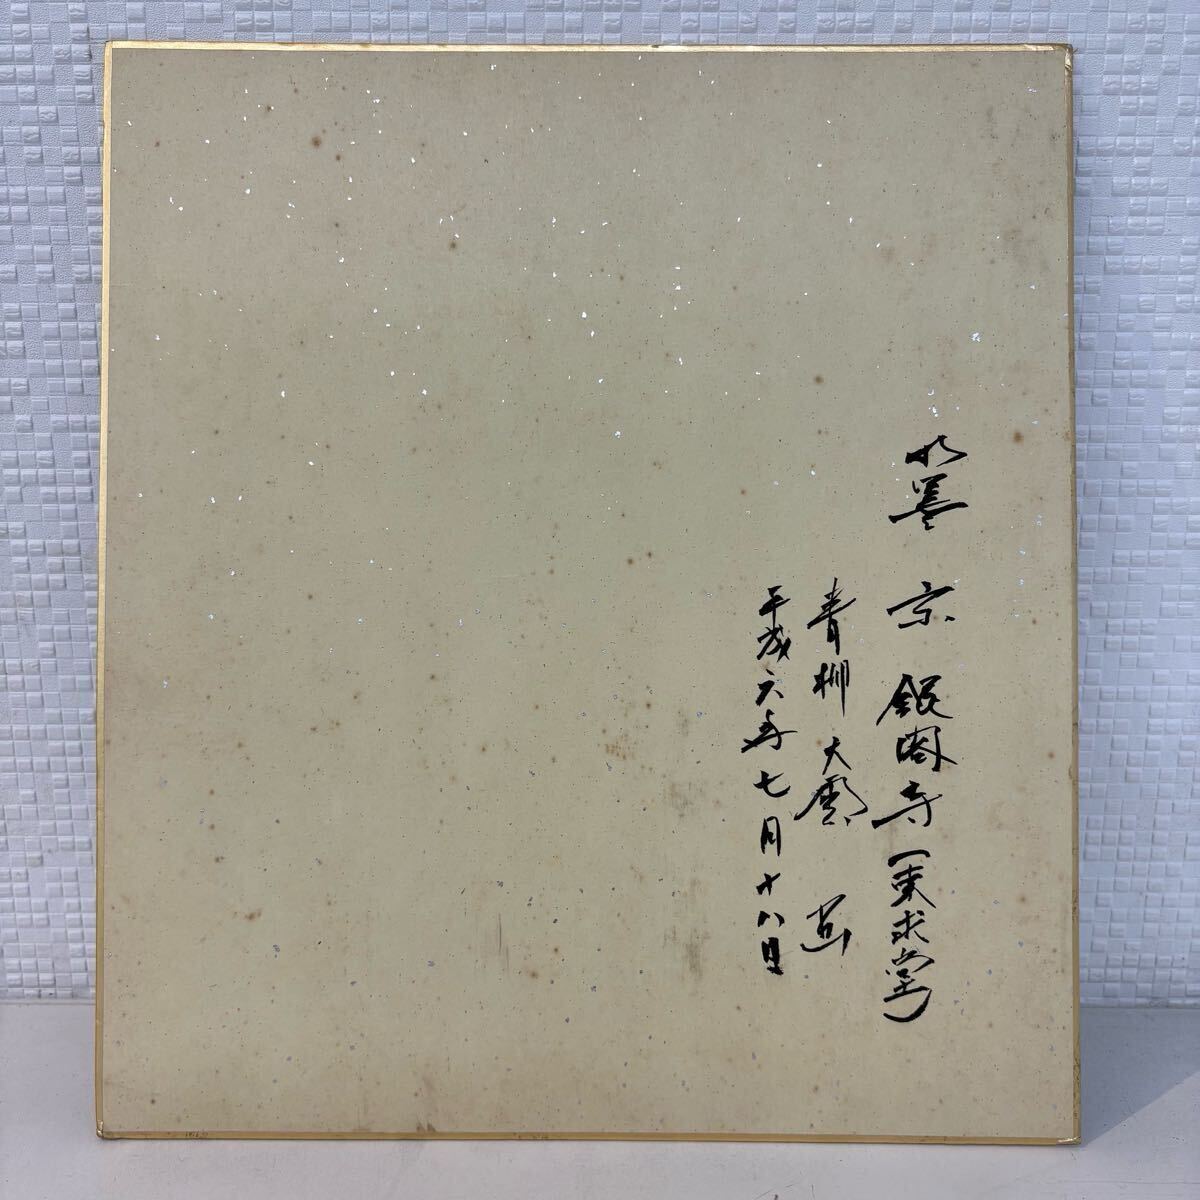 水墨 京 銀閣寺(東求堂)
青柳 大雲 画
平成六年七月十八日